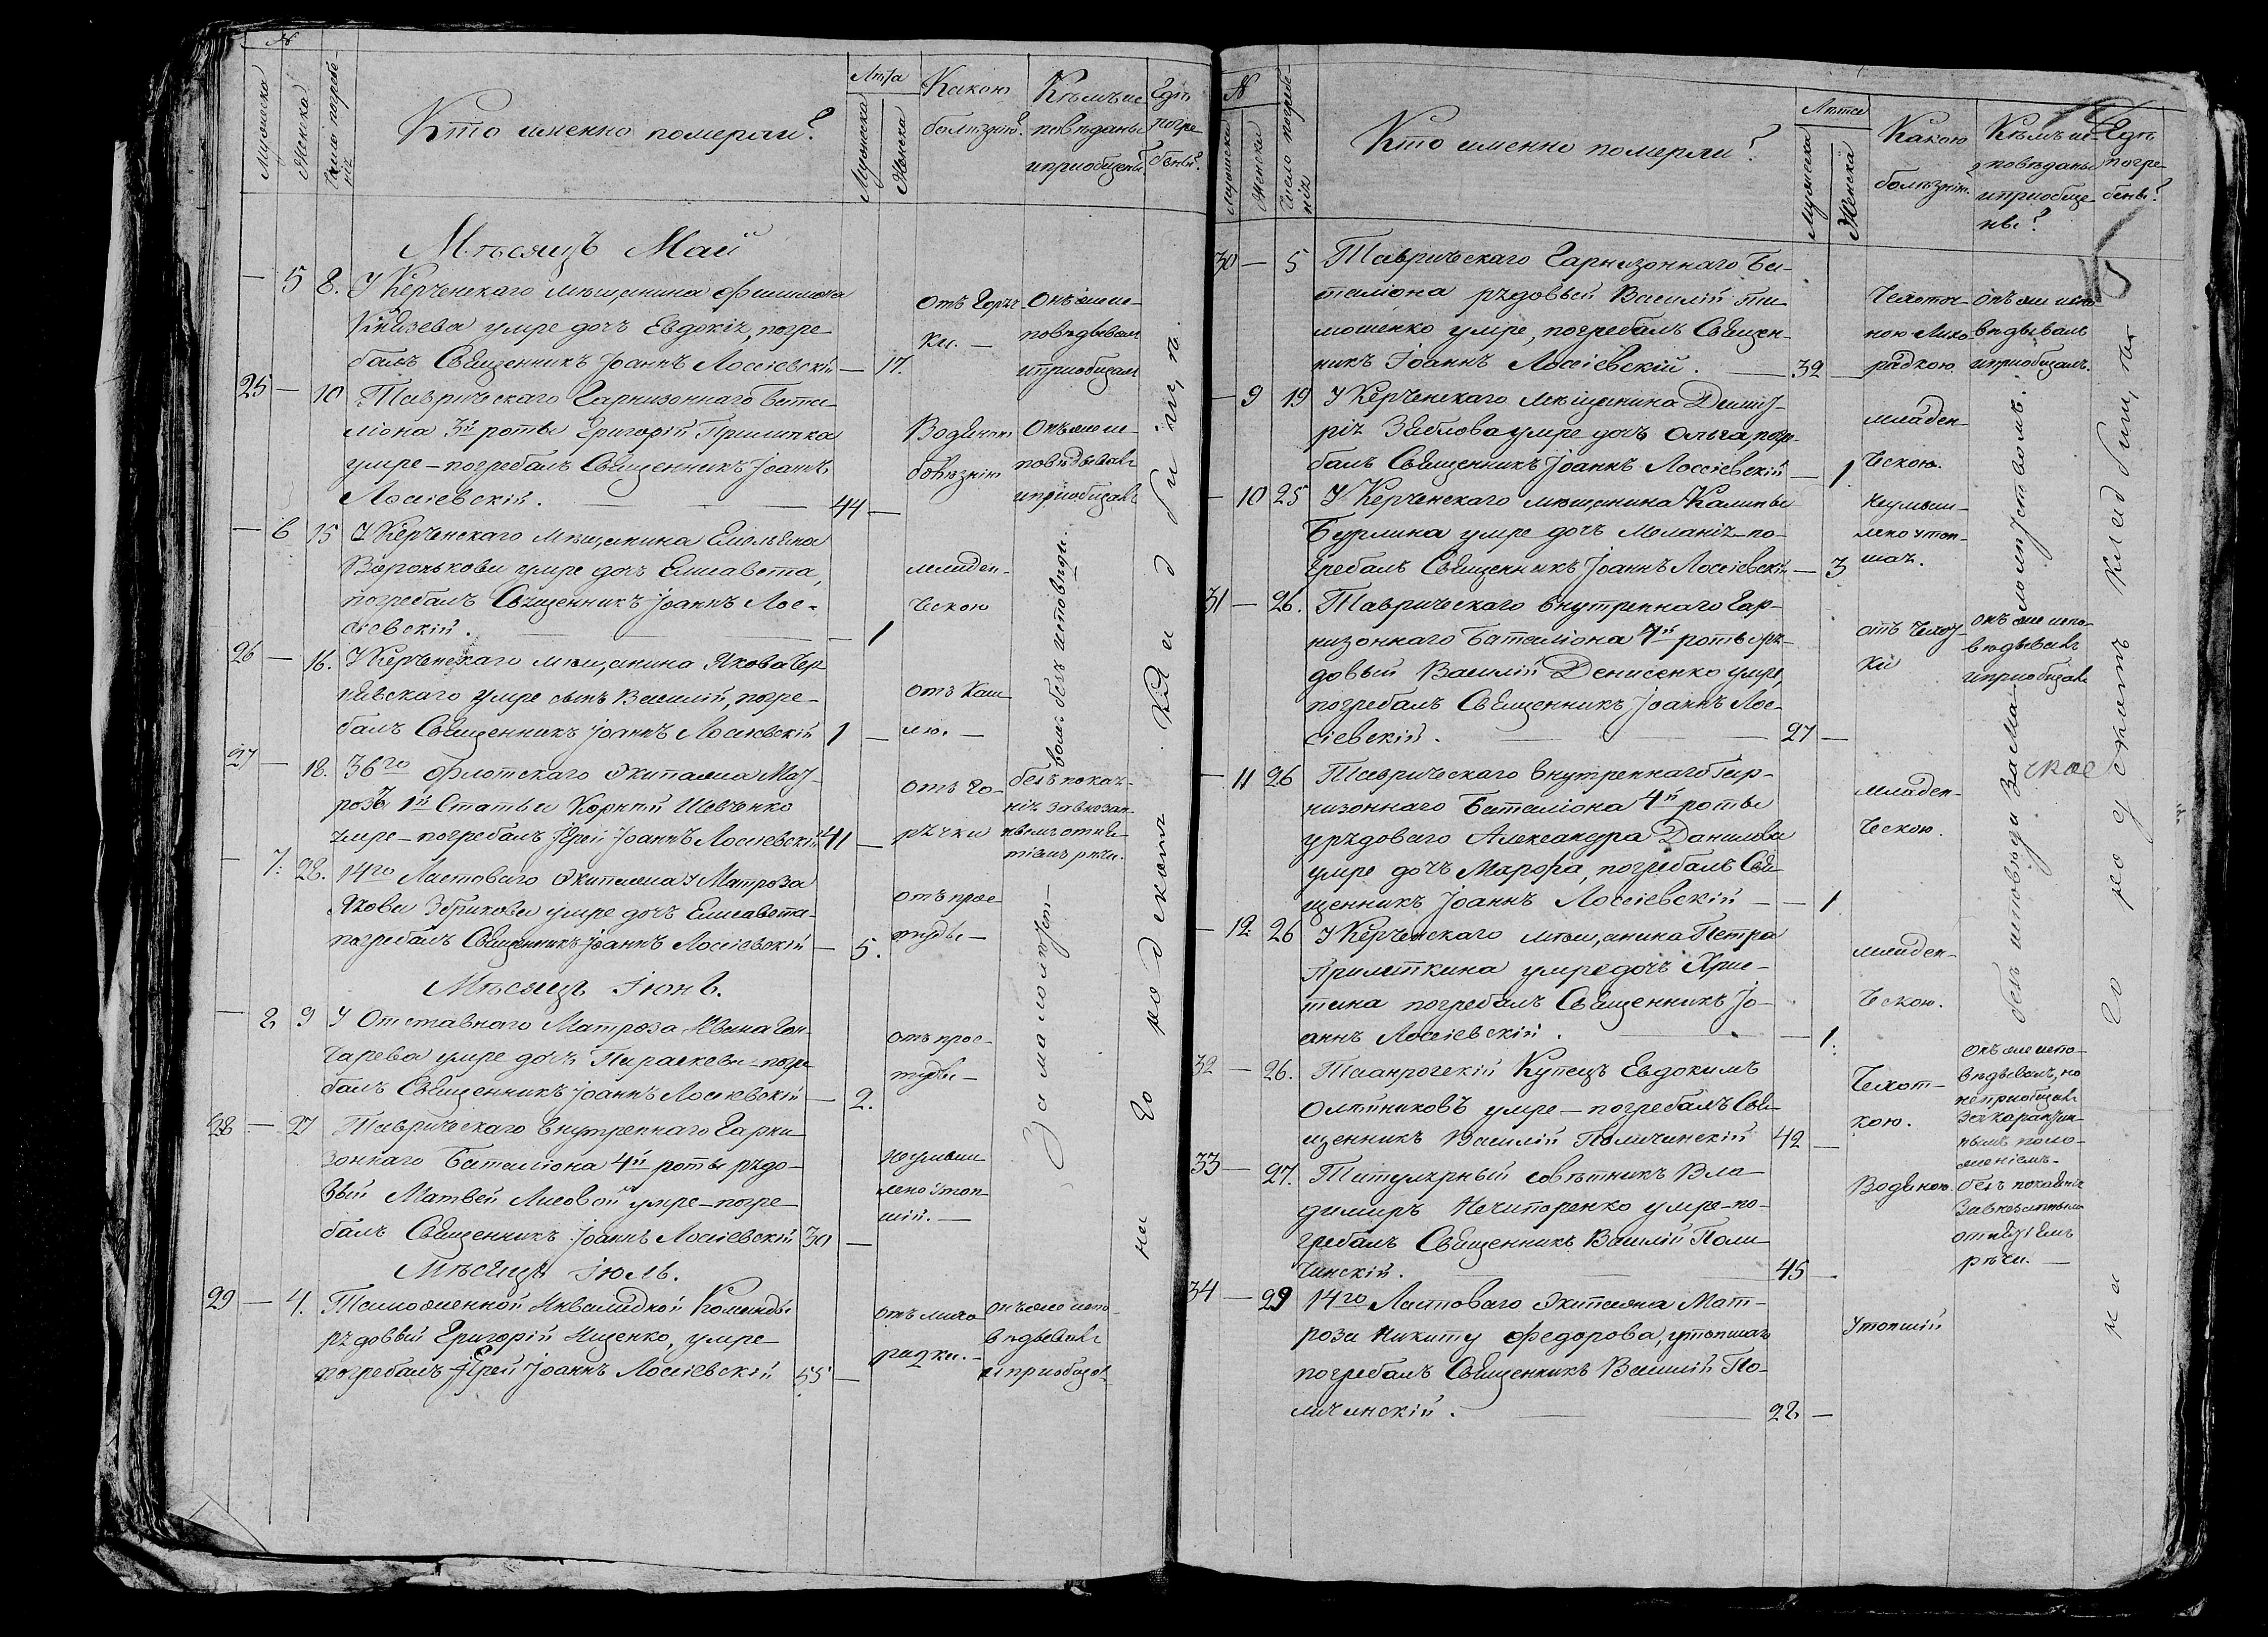 №
Мужеска
Женска
Число погребе-
нія
Кто именно померли?
Лѣта
Мужеска
Женска
Какою
болѣзнію?
Кѣмъ ис-
повѣданы
и пріобщены?
Гдѣ
погре-
бены?
Мѣсяцъ Май
— 5 8. У Керченскаго мѣщанина
Князева умре дочь Евдокія, погре-
балъ Священникъ Іоаннъ Лосіевскій — 17.
отъ Горяч-
ки. —
Онъ же ис-
повѣдывалъ
и пріобщалъ
25 — 10 Таврическаго Гарнизоннаго Бата-
ліона 3й роты Григорій Прилипка
умре — погребалъ Священникъ Іоаннъ
Лосіевскій. 44 —
Водяною
болѣзнію
Онъ же ис-
повѣдывалъ
и пріобщалъ
— 6 15 У Керченскаго мѣщанина Емельяна
Воронькова умре дочь Елисавета,
погребалъ Священникъ Іоаннъ Лос-
сіевскій. — 1
младен-
ческою
26 — 16. У Керченскаго мѣщанина Якова Чер-
нявскаго умре сынъ Василій, погре-
балъ Священникъ Іоаннъ Лосіевскій 1 —
отъ Каш-
лю. —
27 — 18. 36го Флотскаго Экипажа Мат-
розъ 1й Статьи Корній Шевченко
умре — погребалъ Іерей Іоаннъ Лосіевскій 41 —
отъ Го-
рячки
безъ покая-
нія за внезап-
нымъ отня-
тіемъ рѣчи.
— 7. 28. 14го Ластоваго Экипажа у Матроза
Якова умре дочь Елисавета —
погребалъ Священникъ Іоаннъ Лосіевскій — 5.
отъ прос-
туды —
Мѣсяцъ Іюнь.
— 8 9 У Отставнаго Матроза Ивана Гон-
чарева умре дочь Параскева — погре-
балъ Священникъ Іоаннъ Лосіевскій — 2.
отъ прос-
туды —
28 — 27 Таврическаго внутренняго Гарни-
зоннаго Баталіона 4й роты рядо-
вый Матвей Лисовой умре — погре-
балъ Священникъ Іоаннъ Лосіевскій 30 —
неумыш-
лено утоп-
шій. —
Мѣсяцъ Іюль.
29 — 4. Таможенной Инвалидной Команды
рядовый Григорій Ищенко, умре
погребалъ Іерей Іоаннъ Лосіевскій 55 —
отъ лихо-
радки. —
онъ же испо-
вѣдывалъ
и пріобщал
За малолѣт-
вомъ безъ исповѣди.
на городскомъ кладбищѣ.
№
Мужеска
Женска
Число погребе-
нія
Кто именно померли?
Лѣта
Мужеска
Женска
Какою
болѣзнію?
Кѣмъ ис-
повѣданы
и пріобще-
ны?
Гдѣ
погре-
бены?
30 — 5 Таврическаго Гарнизоннаго Ба-
таліона рядовый Василій Ти-
мошенко умре, погребалъ Священ-
никъ Іоаннъ Лосіевскій. — 39 —
Чахоточ-
ною Лихо-
радкою
онъ же испо-
вѣдывалъ
и пріобщалъ.
— 9 19 У Керченскаго мѣщанина Дмит-
рія Заблова умре дочь Ольга, погре-
балъ Священникъ Іоаннъ Лоссіевскій — 1.
младен-
ческою.
— 10 25 У Керченскаго мѣщанина Калины
Бурлина умре дочь Меланія — по-
гребалъ Священникъ Іоаннъ Лоссіевскій — 3
неумыш-
лено утоп-
шая.
31 — 26. Таврическаго внутренняго Гар-
низоннаго Баталіона 7й роты ря-
довый Василій Денисенко умре,
погребалъ Священникъ Іоаннъ Лос-
сіевскій. 27 —
отъ Чахот-
ки
онъ же испо-
вѣдывалъ
и пріобщалъ
— 11 26 Таврическаго внутренняго Гар-
низоннаго Баталіона 4й роты
у рядоваго Александра Данилова
умре дочь Марфа, погребалъ Свя-
щенникъ Іоаннъ Лоссіевскій — 1
младен-
ческою.
— 12 26 У Керченскаго мѣщанина Петра
Прилипкина умре дочь Хрис-
тина погребалъ Священникъ Іо-
аннъ Лоссіевскій. — 1.
младен-
ческою.
32 — 26. Таганрогскій Купецъ Евдокимъ
умре — погребалъ Свя-
щенникъ Василій Поличинскій 42 —
Чахот-
кою.
онъ же испо-
вѣдывалъ, но
не пріобщалъ
за карантин-
нымъ поло-
женіемъ —
33 — 27. Титулярный совѣтникъ Вла-
димиръ Нечипоренко умре — по-
гребалъ Священникъ Василій Поли-
чинскій. 45 —
Водяною.
безъ покаянія
за
отнятіемъ
рѣчи. —
34 — 29 14го Ластоваго Экипажа Мат-
роза Никиту Федорова, утопшаго
погребалъ Священникъ Василій По-
личинскій. — 28 —
Утопшій
безъ исповѣди за Ма- лолѣтствомъ.
на городскомъ кладбищѣ